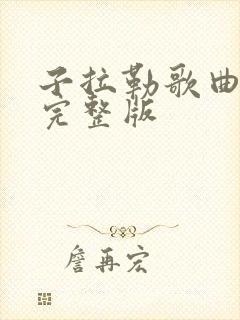 子拉勒歌曲
完整版
詹再宏